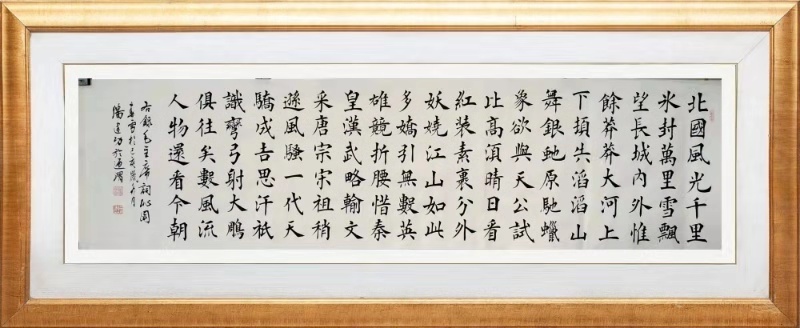 北國風光千里
氷封萬里雪飄
望長城内外惟
餘莽莽大河上
下頓失滔滔山
舞銀虵原馳蠟
象欲與天公試
比高須晴日看
紅装素裹分外
妖嬈江山如此
多嬌引無數英
雄競折腰惜秦
皇漢武略輸文
采唐宗宋祖稍
遜風騷一代天
驕成吉思汗衹
識彎弓射大鵰
俱往矣數風流
人物還看今朝
右録毛主席詞沁園
春雪於己亥歲月